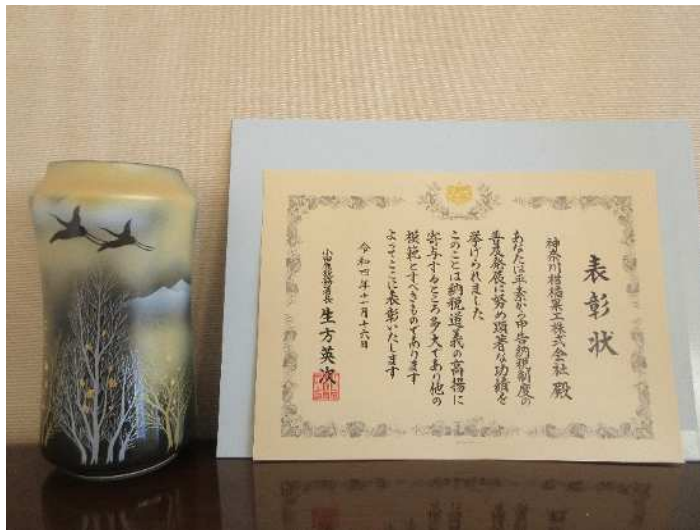 表彰状
神奈川柑橘果工株式会社 殿
あなたは平素から申告納税制度の
普及発展に努め顕著な功績を
挙げられました
このことは納税道義の高揚に
寄与するところ多大であり他の
模範とすべきものであります
よつてここに表彰いたします
令和四年十一月十六日
小田原税務署長 生方英次